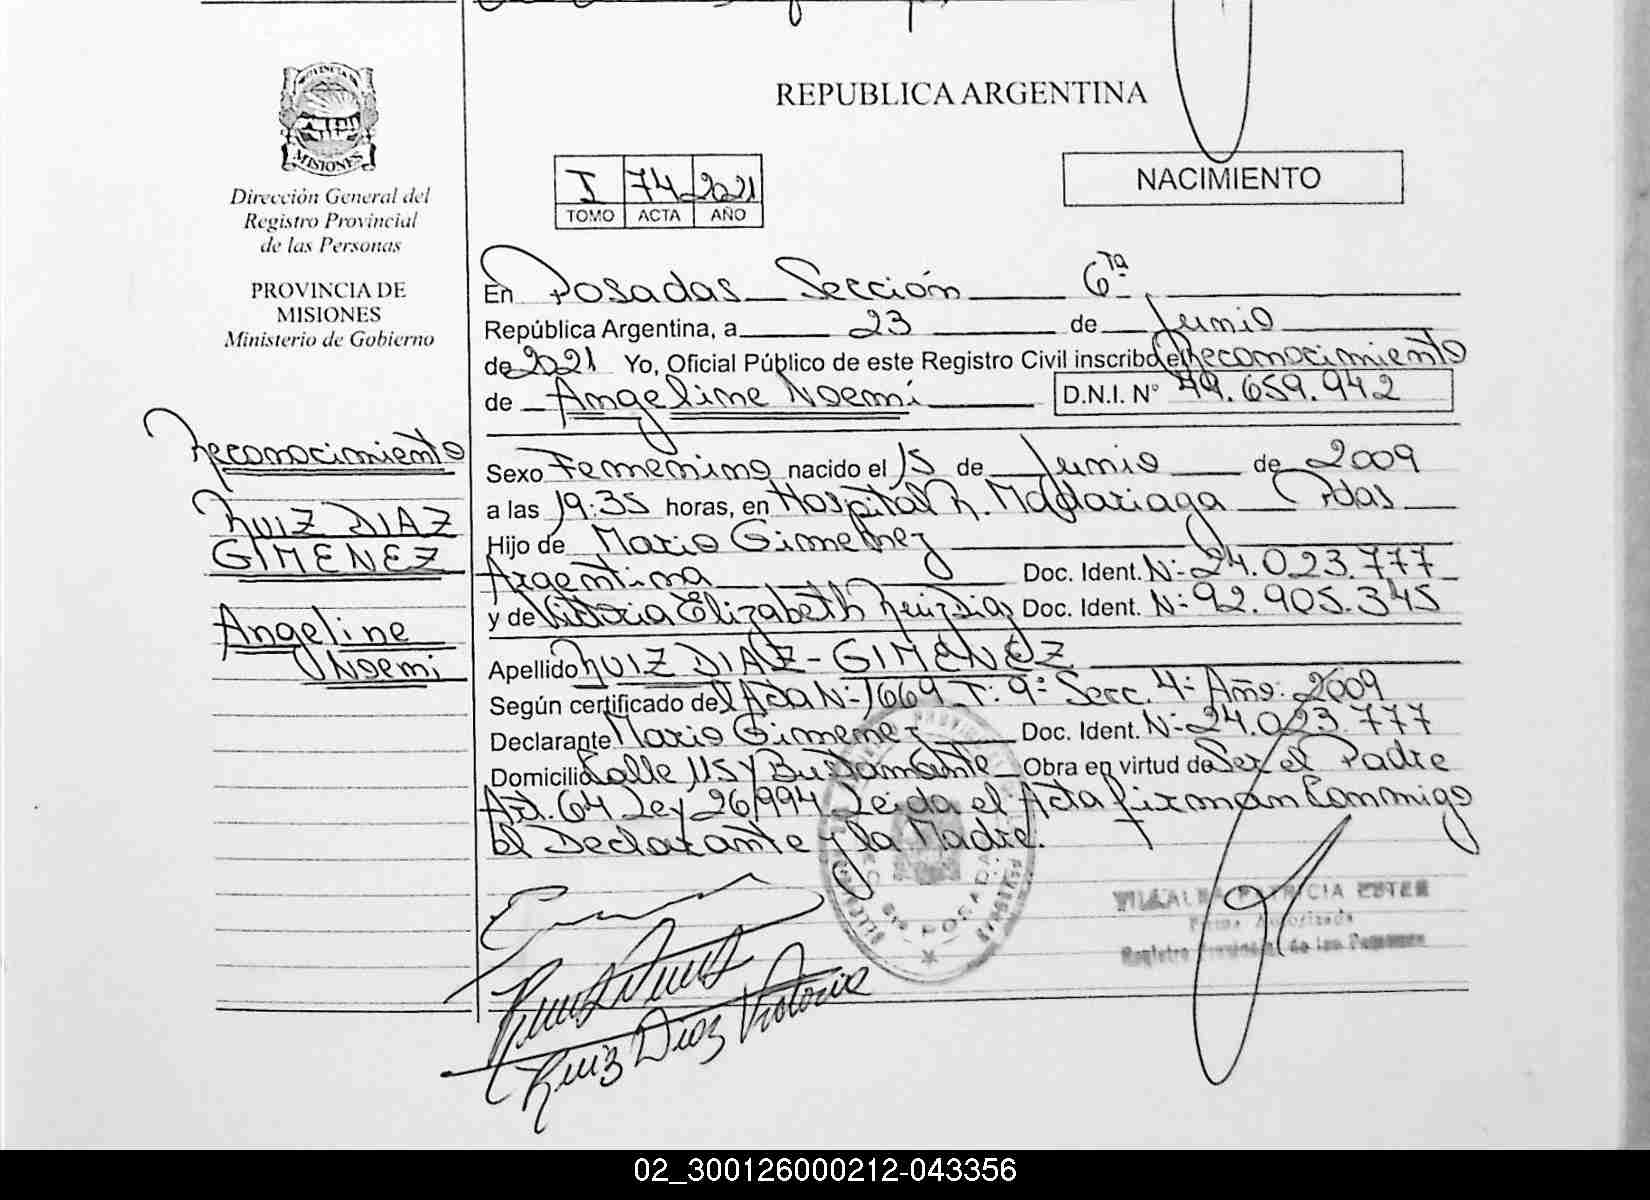 PROVINCIA DE
MISIONES
Dirección General del
Registro Provincial
de las Personas
PROVINCIA DE
MISIONES
Ministerio de Gobierno
Reconocimiento
RUIZ DIAZ
GIMENEZ
Angeline
Noemi
REPUBLICA ARGENTINA
I 74 2021
TOMO ACTA AÑO
NACIMIENTO
En Posadas Sección 6ta
República Argentina, a 23 de Junio
de 2021 Yo, Oficial Público de este Registro Civil inscribo el Reconocimiento
de Angeline Noemi D.N.I. N° 49.659.942
Sexo Femenino nacido el 15 de Junio de 2009
a las 19:35 horas, en Hospital R. Madariaga Pdas
Hijo de Mario Gimenez
Argentina Doc. Ident. N:- 24.023.777
y de Victoria Elizabeth Ruiz Diaz Doc. Ident. N:- 92.905.345
Apellido RUIZ DIAZ - GIMENEZ
Según certificado del Acta N:- 1669 T: 9º Secc. 4º Año: 2009
Declarante Mario Gimenez Doc. Ident. N:- 24.023.777
Domicilio Calle 115 y Bustamante Obra en virtud de Ser el Padre
Art. 64 Ley 26994 Leida el Acta firman Conmigo
el Declarante y la Madre.
VILLALBA PATRICIA ESTER
Firma Autorizada
Registro Provincial de las Personas
POSADAS
Ruiz Diaz Victoria
02_300126000212-043356